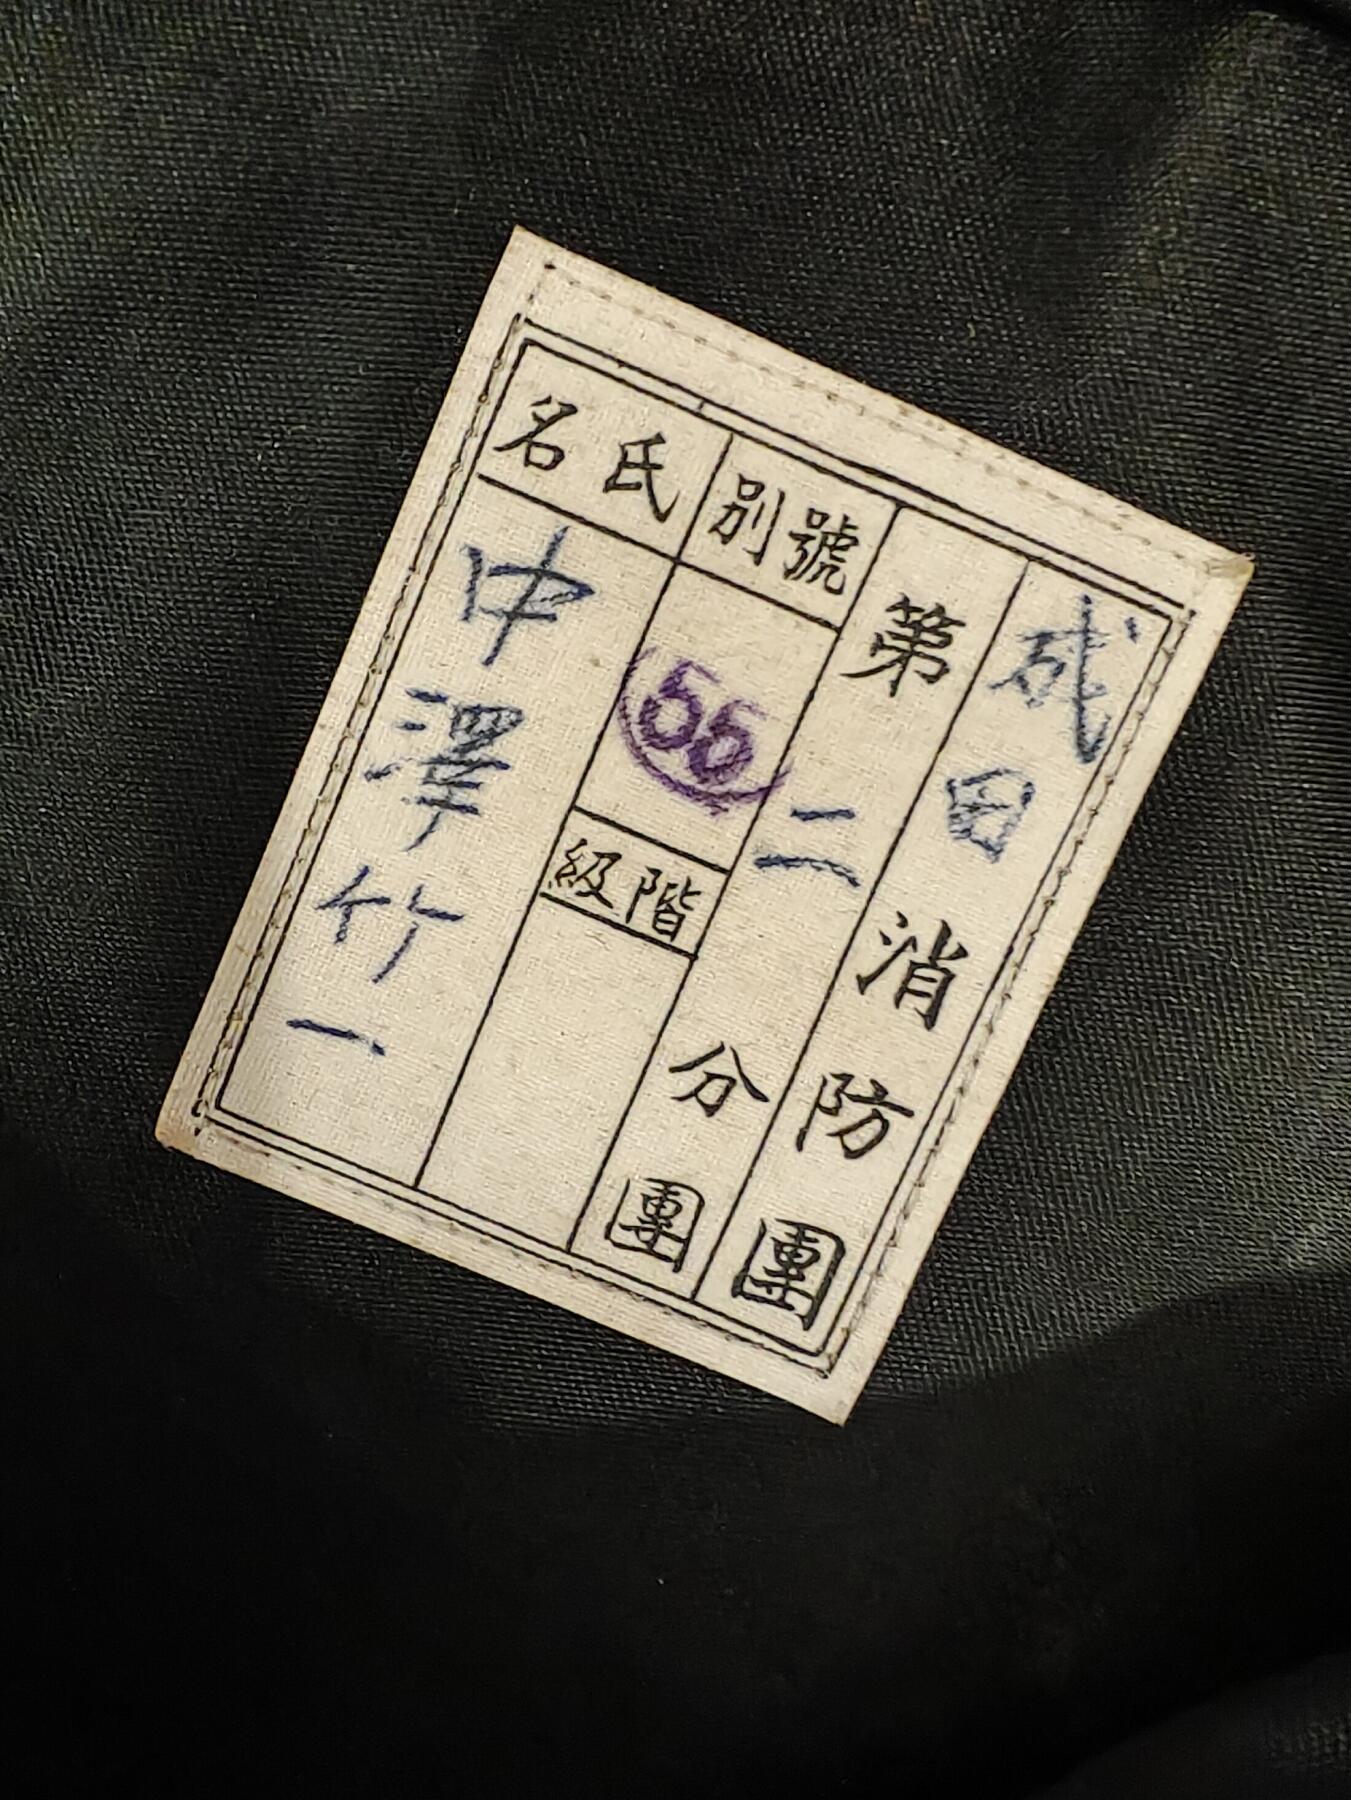 成田消防團
第二分團
號別
56
階級
氏名
中澤竹一